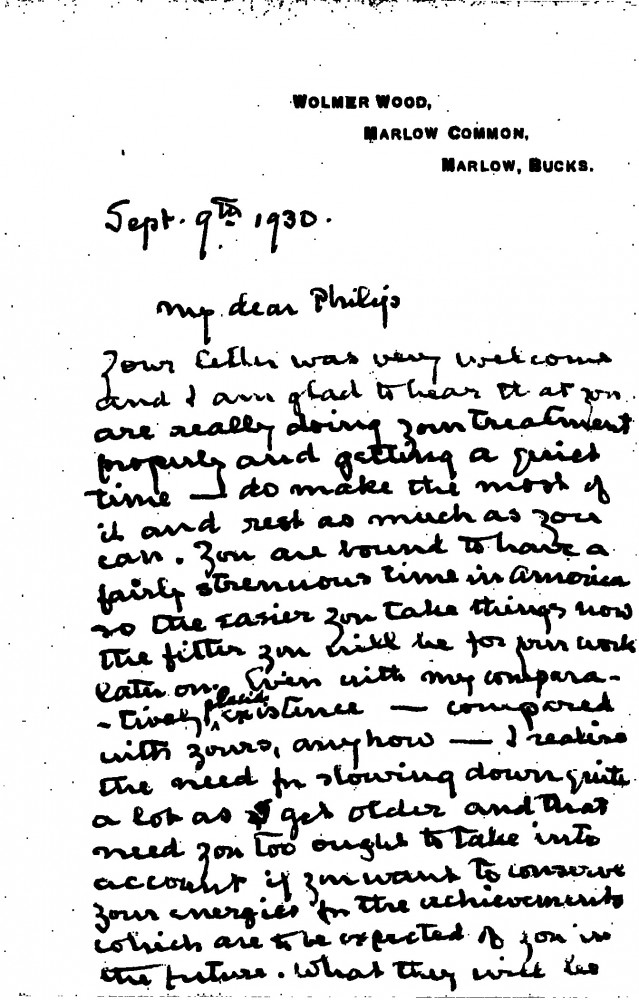 WOLMER WOOD,
MARLOW COMMON,
MARLOW, BUCKS.
Sept. 9th 1930.
My dear Philip
Your letter was very welcome
and I am glad to hear that you
are really doing your treatment
properly and getting a quiet
time — do make the most of
it and rest as much as you
can. You are bound to have a
fairly strenuous time in America
so the easier you take things now
the fitter you will be for your work
later on. Even with my compara-
-tively placid existence — compared
with yours, anyhow — I realise
the need for slowing down quite
a lot as I get older and that
need you too ought to take into
account if you want to conserve
your energies for the achievements
which are to be expected of you in
the future. What they will be